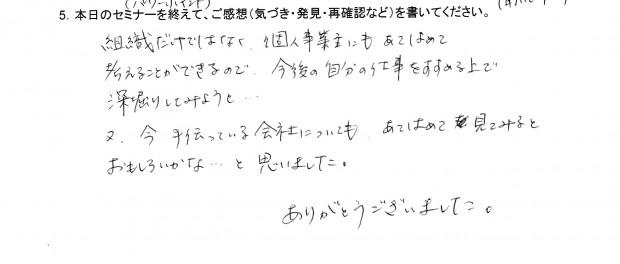 5. 本日のセミナーを終えて、ご感想(気づき・発見・再確認など)を書いてください。
組織だけではなく、個人事業主にもあてはめて
考えることができるので、今後の自分の仕事をすすめる上で
深堀りしてみようと…
又、今手伝っている会社についても、あてはめて見てみると
おもしろいかな…と思いました。
ありがとうございました。